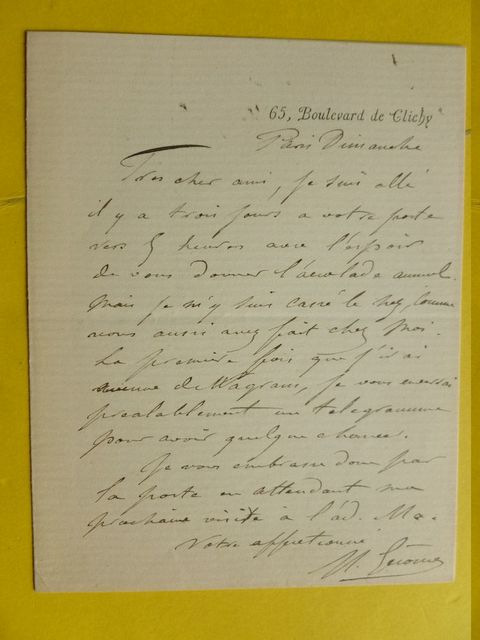 65, Boulevard de Clichy
Paris Dimanche
Très cher ami, je suis allé
il y a trois jours a votre porte
vers 5 heures avec l'espoir
de vous donner l'accolade annuel.
Mais je m'y suis cassé le nez, comme
vous aussi avez fait chez moi.
La première fois que j'irai
avenue de Wagram, je vous enverrai
préalablement un télégramme
pour avoir quelque chance.
Je vous embrasse donc par
la porte en attendant ma
prochaine visite à l'ad.
Votre affectionné